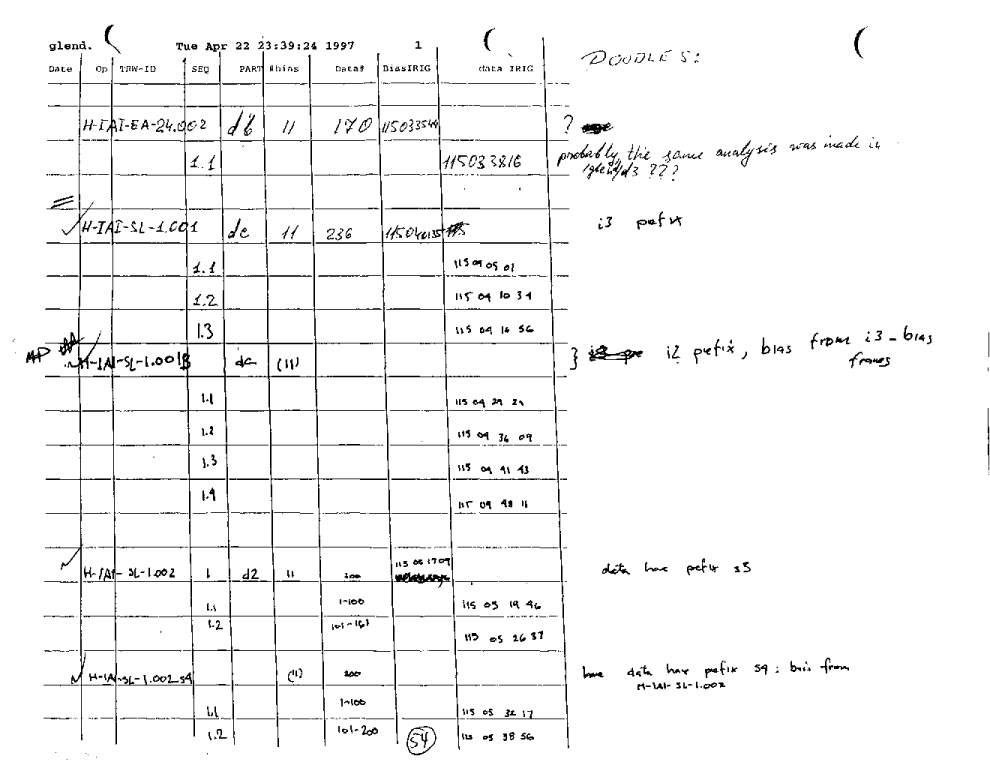 glend. Tue Apr 22 23:39:24 1997 1
DOODLES:
Date Op TRW-ID SEQ PART #bias Data# BiasIRIG data IRIG
H-IAI-EA-24.002 d6 11 170 115033544 ?
1.1 115033816 probably the same analysis was made in
d3 ???
H-IAI-SL-1.001 dc 11 236 i3 prefix
1.1 115 04 05 01
1.2 115 04 10 34
1.3 115 04 16 56
H-IAI-SL-1.001B dc (11) } i2 prefix, bias from i3-bias
frames
1.1 115 04 29 29
1.2 115 04 36 09
1.3 115 04 41 43
1.4 115 04 48 11
H-IAI-SL-1.002 1 d2 11 200 115 05 17 09 data have prefix s5
1.1 1-100 115 05 19 46
1.2 101-161 115 05 26 37
H-IAI-SL-1.002 s4 (11) 200 data have prefix s4; bias from
H-IAI-SL-1.002
1.1 1-100 115 05 32 17
1.2 101-200 115 05 38 56
54